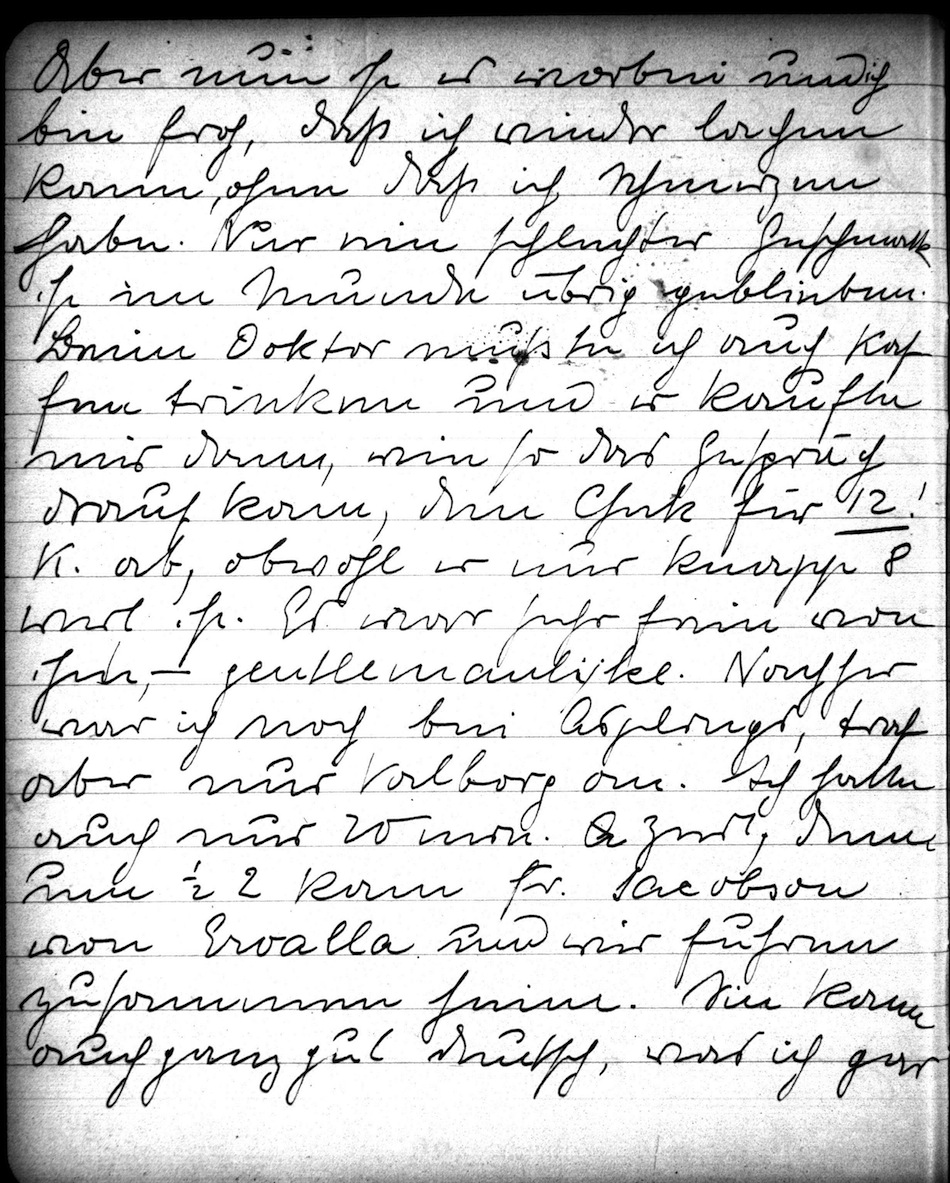 Aber nun ist es vorbei und ich
bin froh, daß ich wieder lachen
kann, ohne daß ich Schmerzen
habe. Nur ein schlechter Geschmack
ist im Munde übrig geblieben.
Beim Doktor mußte ich auch Kaf
fee trinken und er kaufte
mir dann, wie so das Gespräch
drauf kam, den Check für 12!
K. ab, obwohl er nur knapp 8
wert ist. Es war sehr fein von
ihm, – gentlemanlike. Nachher
war ich noch bei Asplings, traf
aber nur Valborg an. Ich hatte
auch nur 20 min. Zeit, denn
um ½ 2 kam Fr. Jacobson
von Ervalla und wir fuhren
zusammen heim. Sie kann
auch ganz gut deutsch, was ich gar